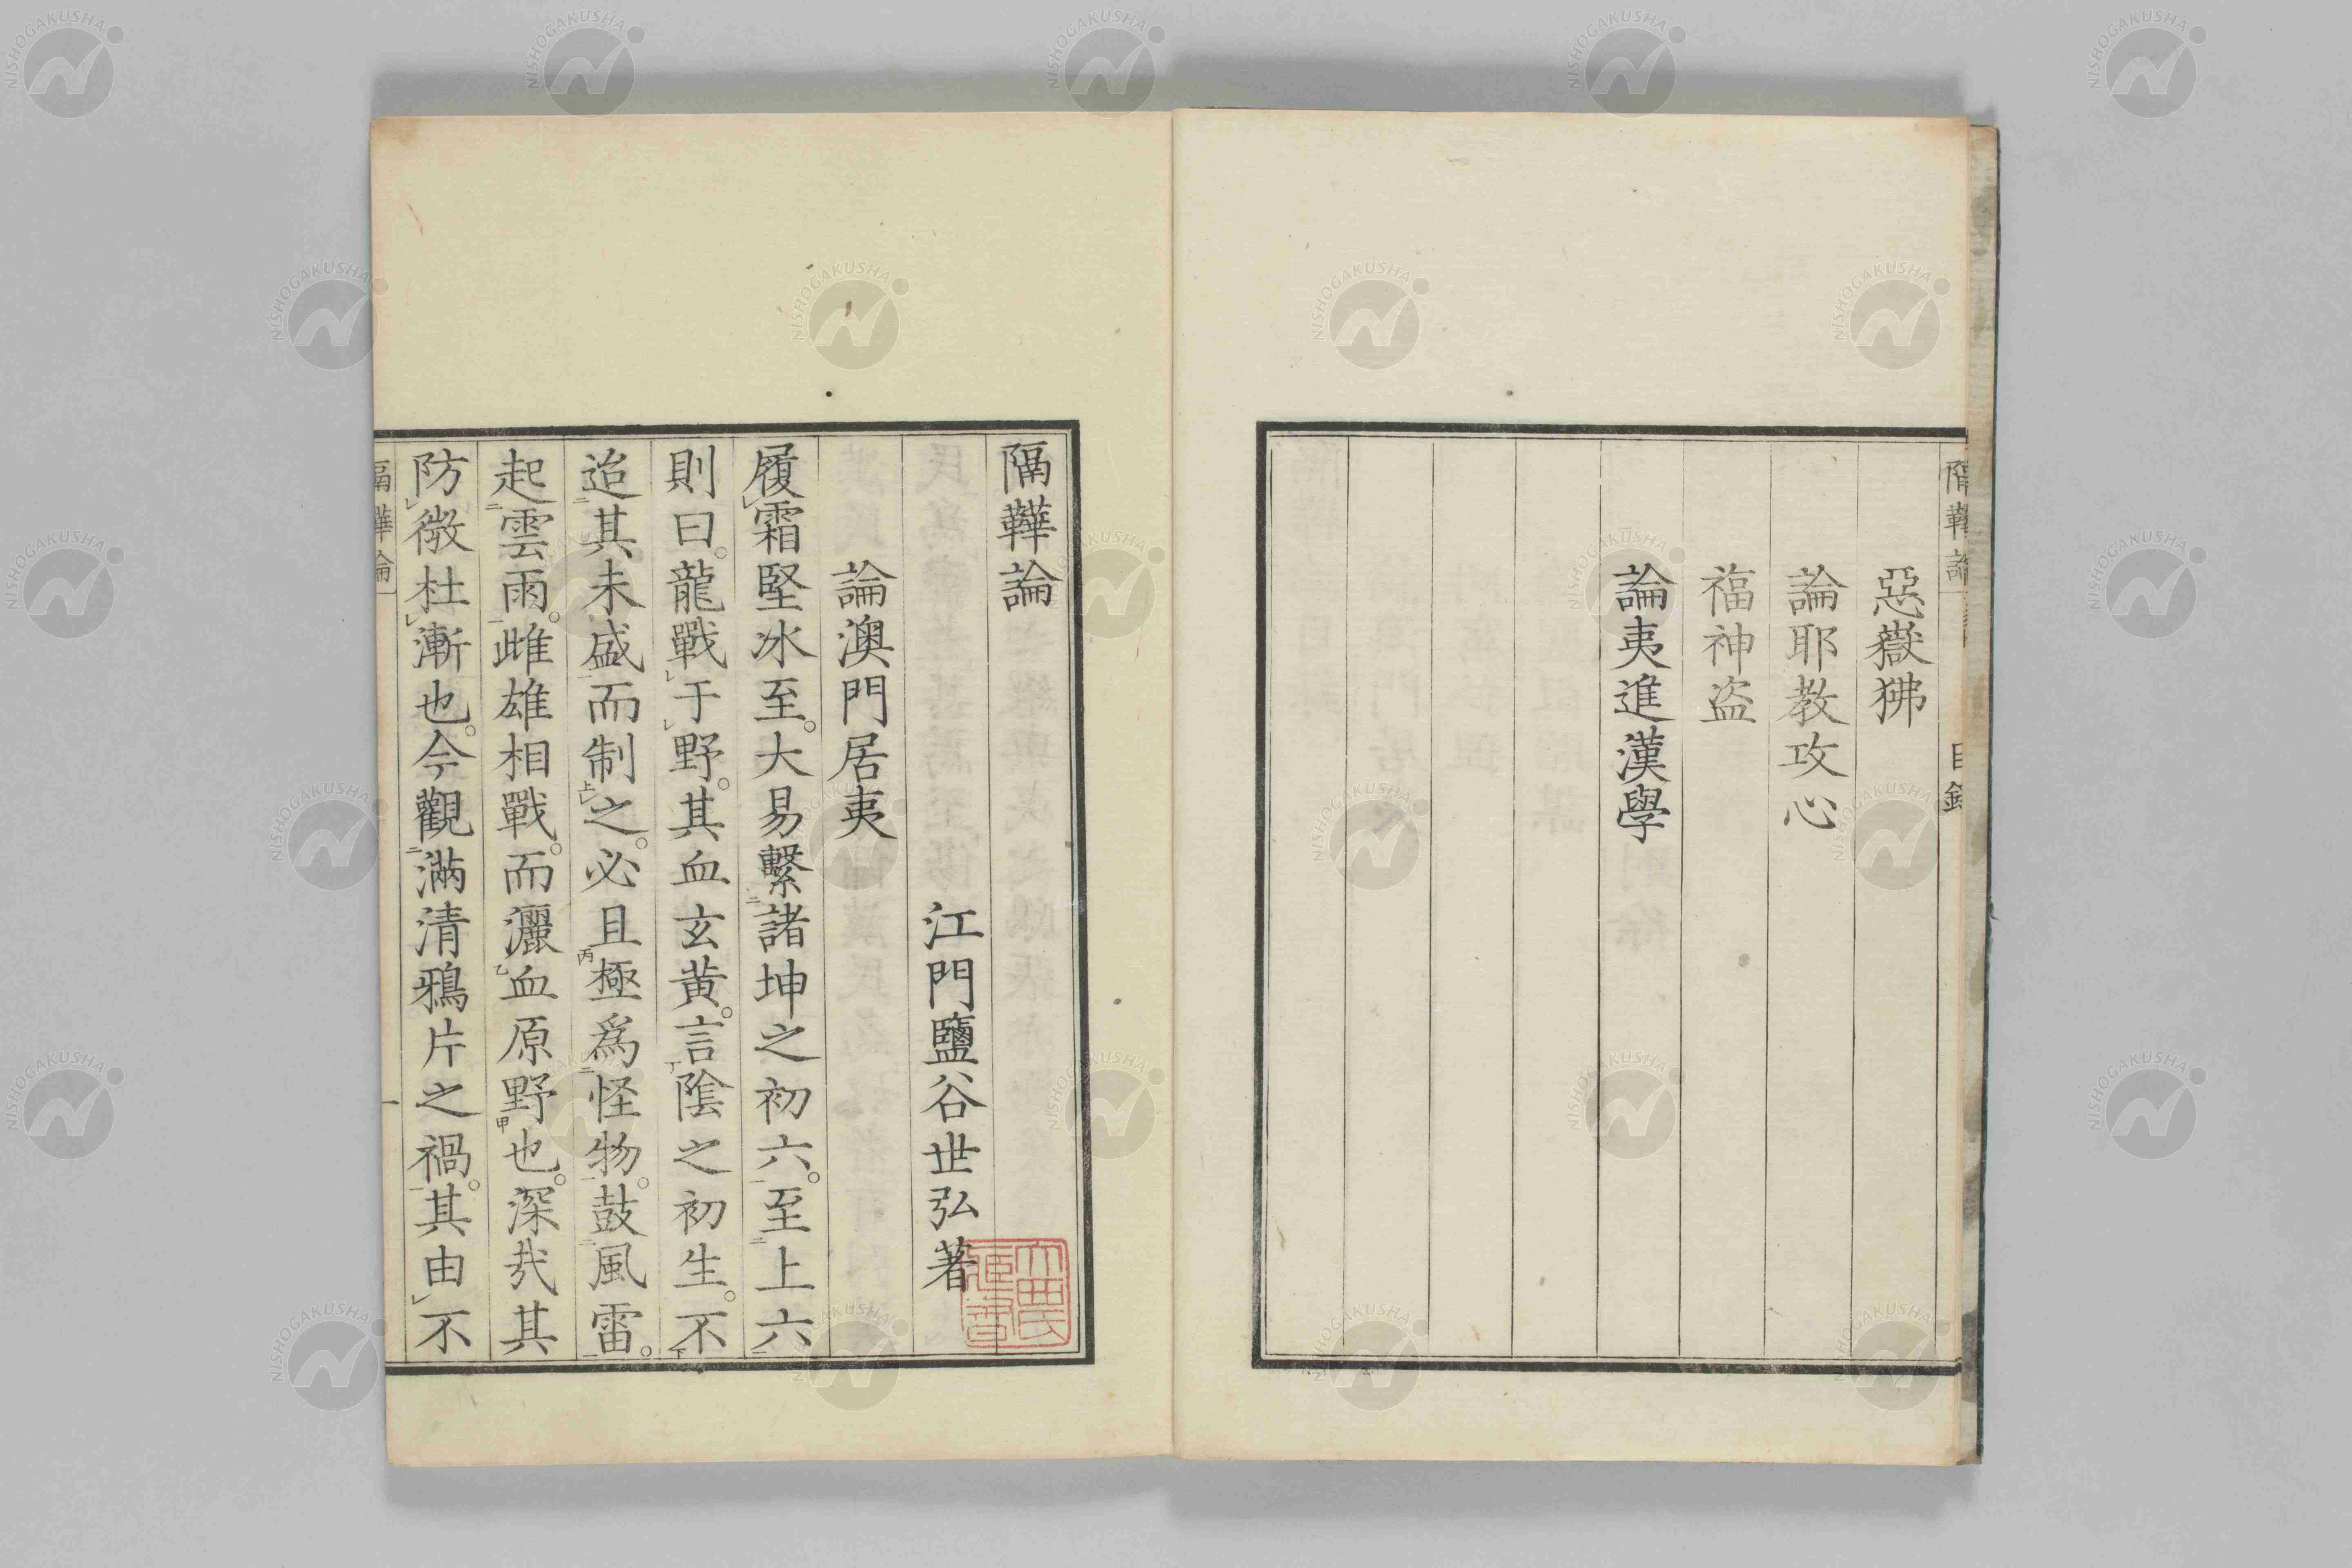 惡嶽狒
論耶教攻心
福神盗
論夷進漢學
隔鞾論
江門鹽谷世弘著
論澳門居夷
履霜堅冰至。大易繫諸坤之初六。至上六
則曰。龍戰于野。其血玄黃。言陰之初生。不
迨其未盛而制之。必且極爲怪物。鼓風雷。
起雲雨。雌雄相戰。而灑血原野也。深哉其
防微杜漸也。今觀滿清鴉片之禍。其由不
隔鞾論
一
NISHOGAKUSHA